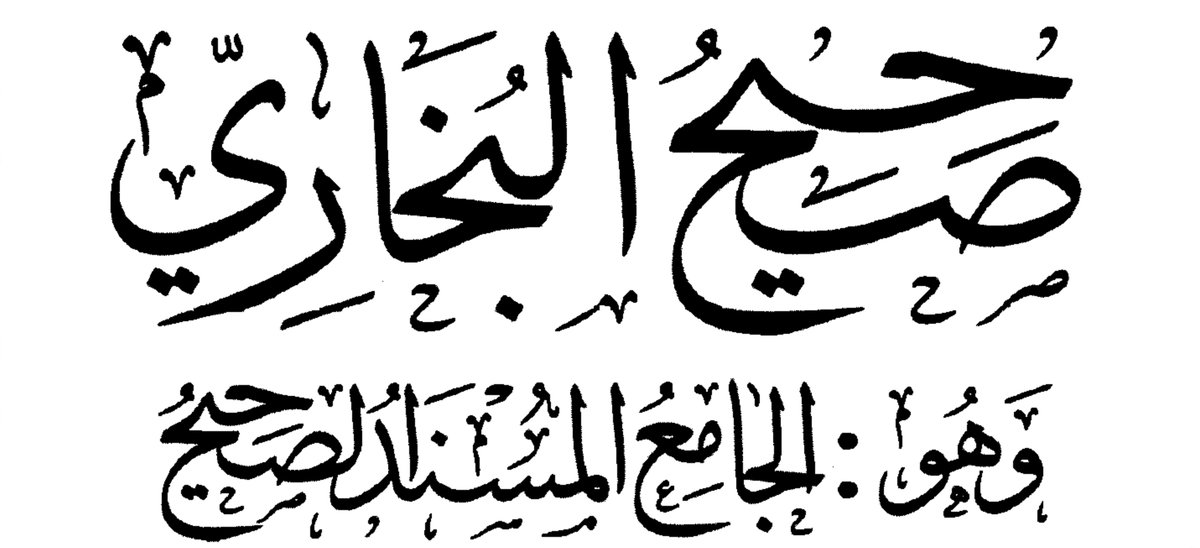 صَحِيحُ البُخَارِيّ
وَهُوَ : الجَامِعُ المُسْنَدُ الصَّحِيحُ